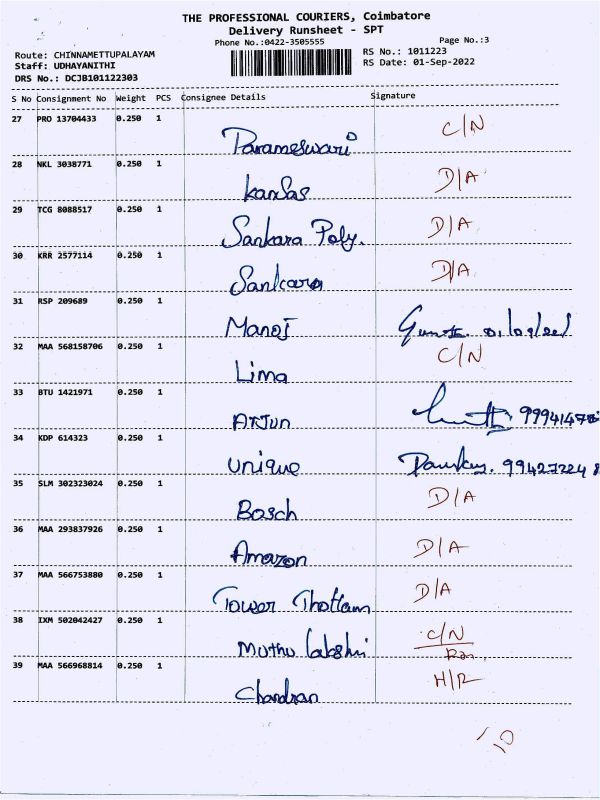 THE PROFESSIONAL COURIERS, Coimbatore
Delivery Runsheet - SPT
Phone No.:0422-3505555 Page No.:3
Route: CHINNAMETTUPALAYAM RS No.: 1011223
Staff: UDHAYANITHI RS Date: 01-Sep-2022
DRS No.: DCJB101122303
S No Consignment No Weight PCS Consignee Details Signature
27 PRO 13704433 0.250 1 C/N
Parameswari
28 NKL 3038771 0.250 1 D/A
Kansas
29 TCG 8088517 0.250 1 D/A
Sankara Poly.
30 KRR 2577114 0.250 1 D/A
Sankara
31 RSP 209689 0.250 1
Manoj
32 MAA 568158706 0.250 1 C/N
Lima
33 BTU 1421971 0.250 1
Arjun
34 KDP 614323 0.250 1
Unique
35 SLM 302323024 0.250 1 D/A
Bosch
36 MAA 293837926 0.250 1 D/A
Amazon
37 MAA 566753880 0.250 1 D/A
Tower Thottam
38 IXM 502042427 0.250 1 C/N
Muthu lakshmi
39 MAA 566968814 0.250 1 H/R
Chandran